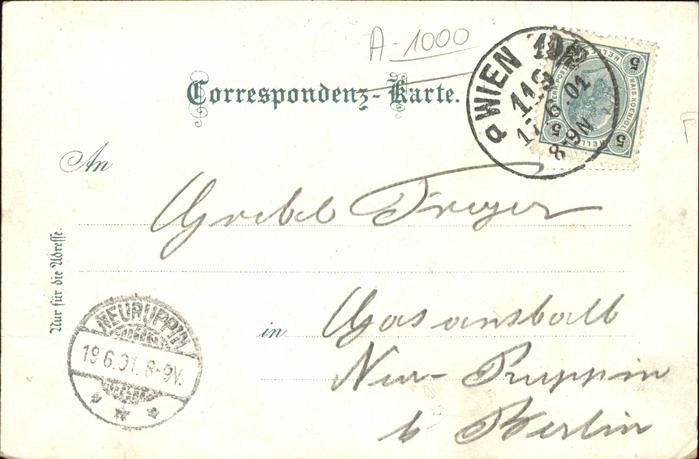 A-1000
Correspondenz-Karte.
WIEN
17.6.01
8-9N
HELLER
5
5
An
Nur für die Adresse.
NEURUPPIN
19.6.01. 8-9V.
in
Gasanstalt
Neu-Ruppin
b Berlin